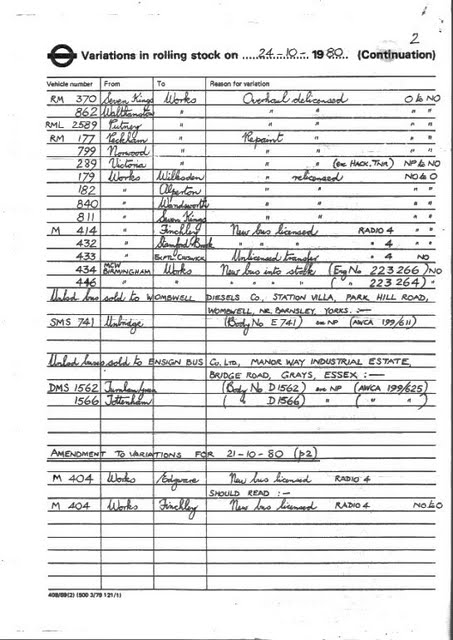 2
Variations in rolling stock on 24-10- 1980 (Continuation)
Vehicle number From To Reason for variation
RM 370 Seven Kings Works Overhaul delicensed O to NO
862 Walthamstow " " " "
RML 2589 Putney " " " "
RM 177 Peckham " Repaint " "
799 Norwood " " " "
289 Victoria " " (ex HACK, TNR) NP to NO
179 Works Willesden " relicensed NO to O
182 " Alperton " " " "
840 " Wandsworth " " " "
811 " Seven Kings " " " "
M 414 " Finchley New bus licensed RADIO 4 " "
432 " Stamford Brook " " " " 4 " "
433 " Unlicensed transfer " 4 NO
434 MCW BIRMINGHAM Works New bus into stock (Eng No 223266) NO
446 " " " " " " ( " 223264) "
Unlsd bus sold to WOMBWELL DIESELS CO, STATION VILLA, PARK HILL ROAD,
WOMBWELL, NR. BARNSLEY, YORKS. :—
SMS 741 Uxbridge (Body No E741) ex NP (AWCA 199/611)
Unlsd buses sold to ENSIGN BUS CO. LTD., MANOR WAY INDUSTRIAL ESTATE,
BRIDGE ROAD, GRAYS, ESSEX :—
DMS 1562 Turnham Green (Body No D1562) ex NP (AWCA 199/625)
1566 Tottenham ( " D1566) " ( " " )
AMENDMENT TO VARIATIONS FOR 21-10-80 (p2)
M 404 Works Edgware New bus licensed RADIO 4
SHOULD READ :—
M 404 Works Finchley New bus licensed RADIO 4 NO to O
408/69(2) (500 3/79 121/1)